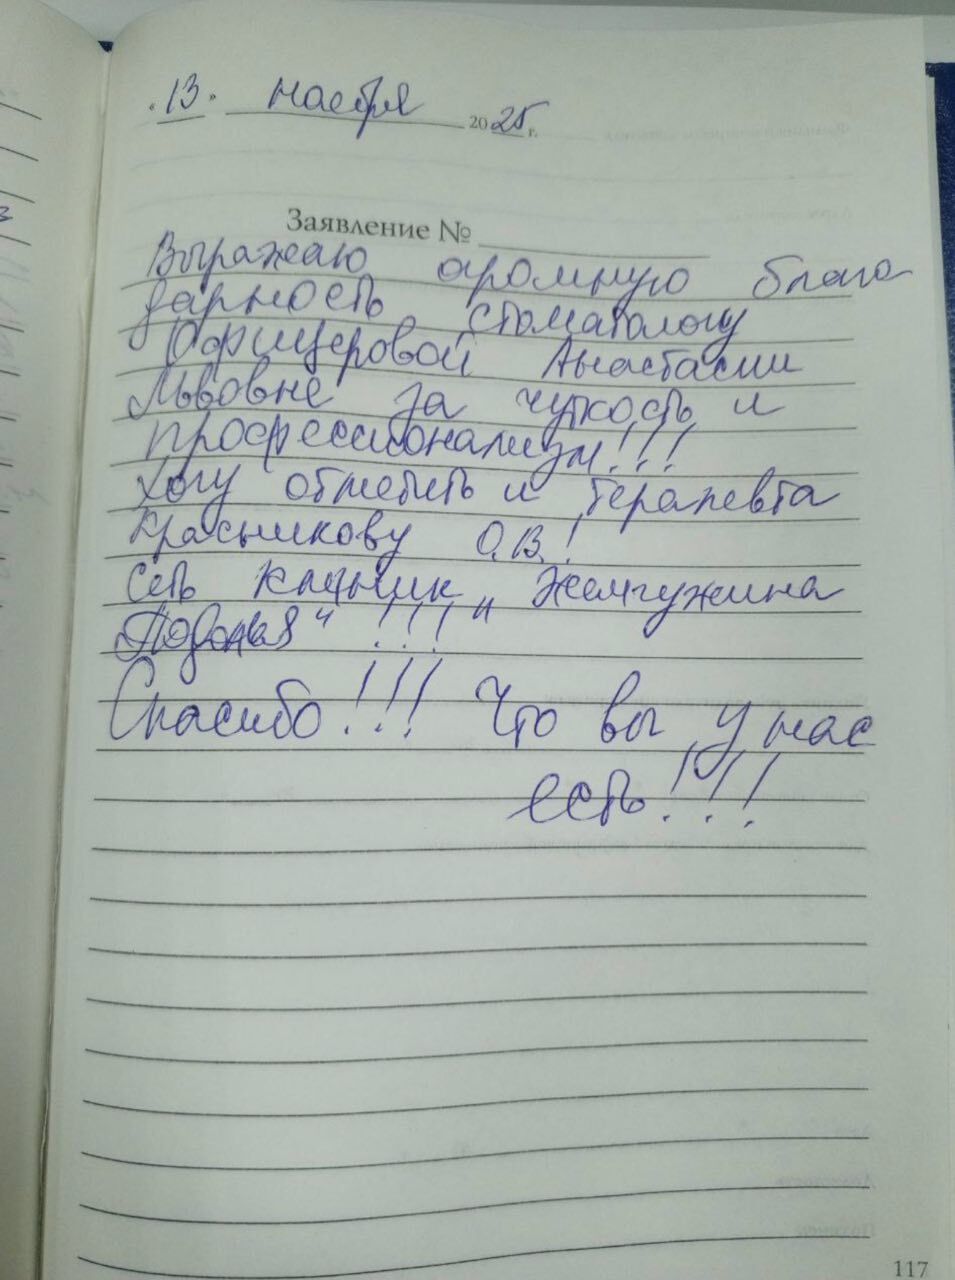 «13» ноября 2025 г.
Заявление №
Выражаю огромную благо
дарность стоматологу
Офицеровой Анастасии
Львовне за чуткость и
профессионализм!!!
Хочу отметить и терапевта
Красникову О.В.!
Сеть клиник "Жемчужина
Подолья" !!!
Спасибо!!! Что вы у нас
есть!!!
117